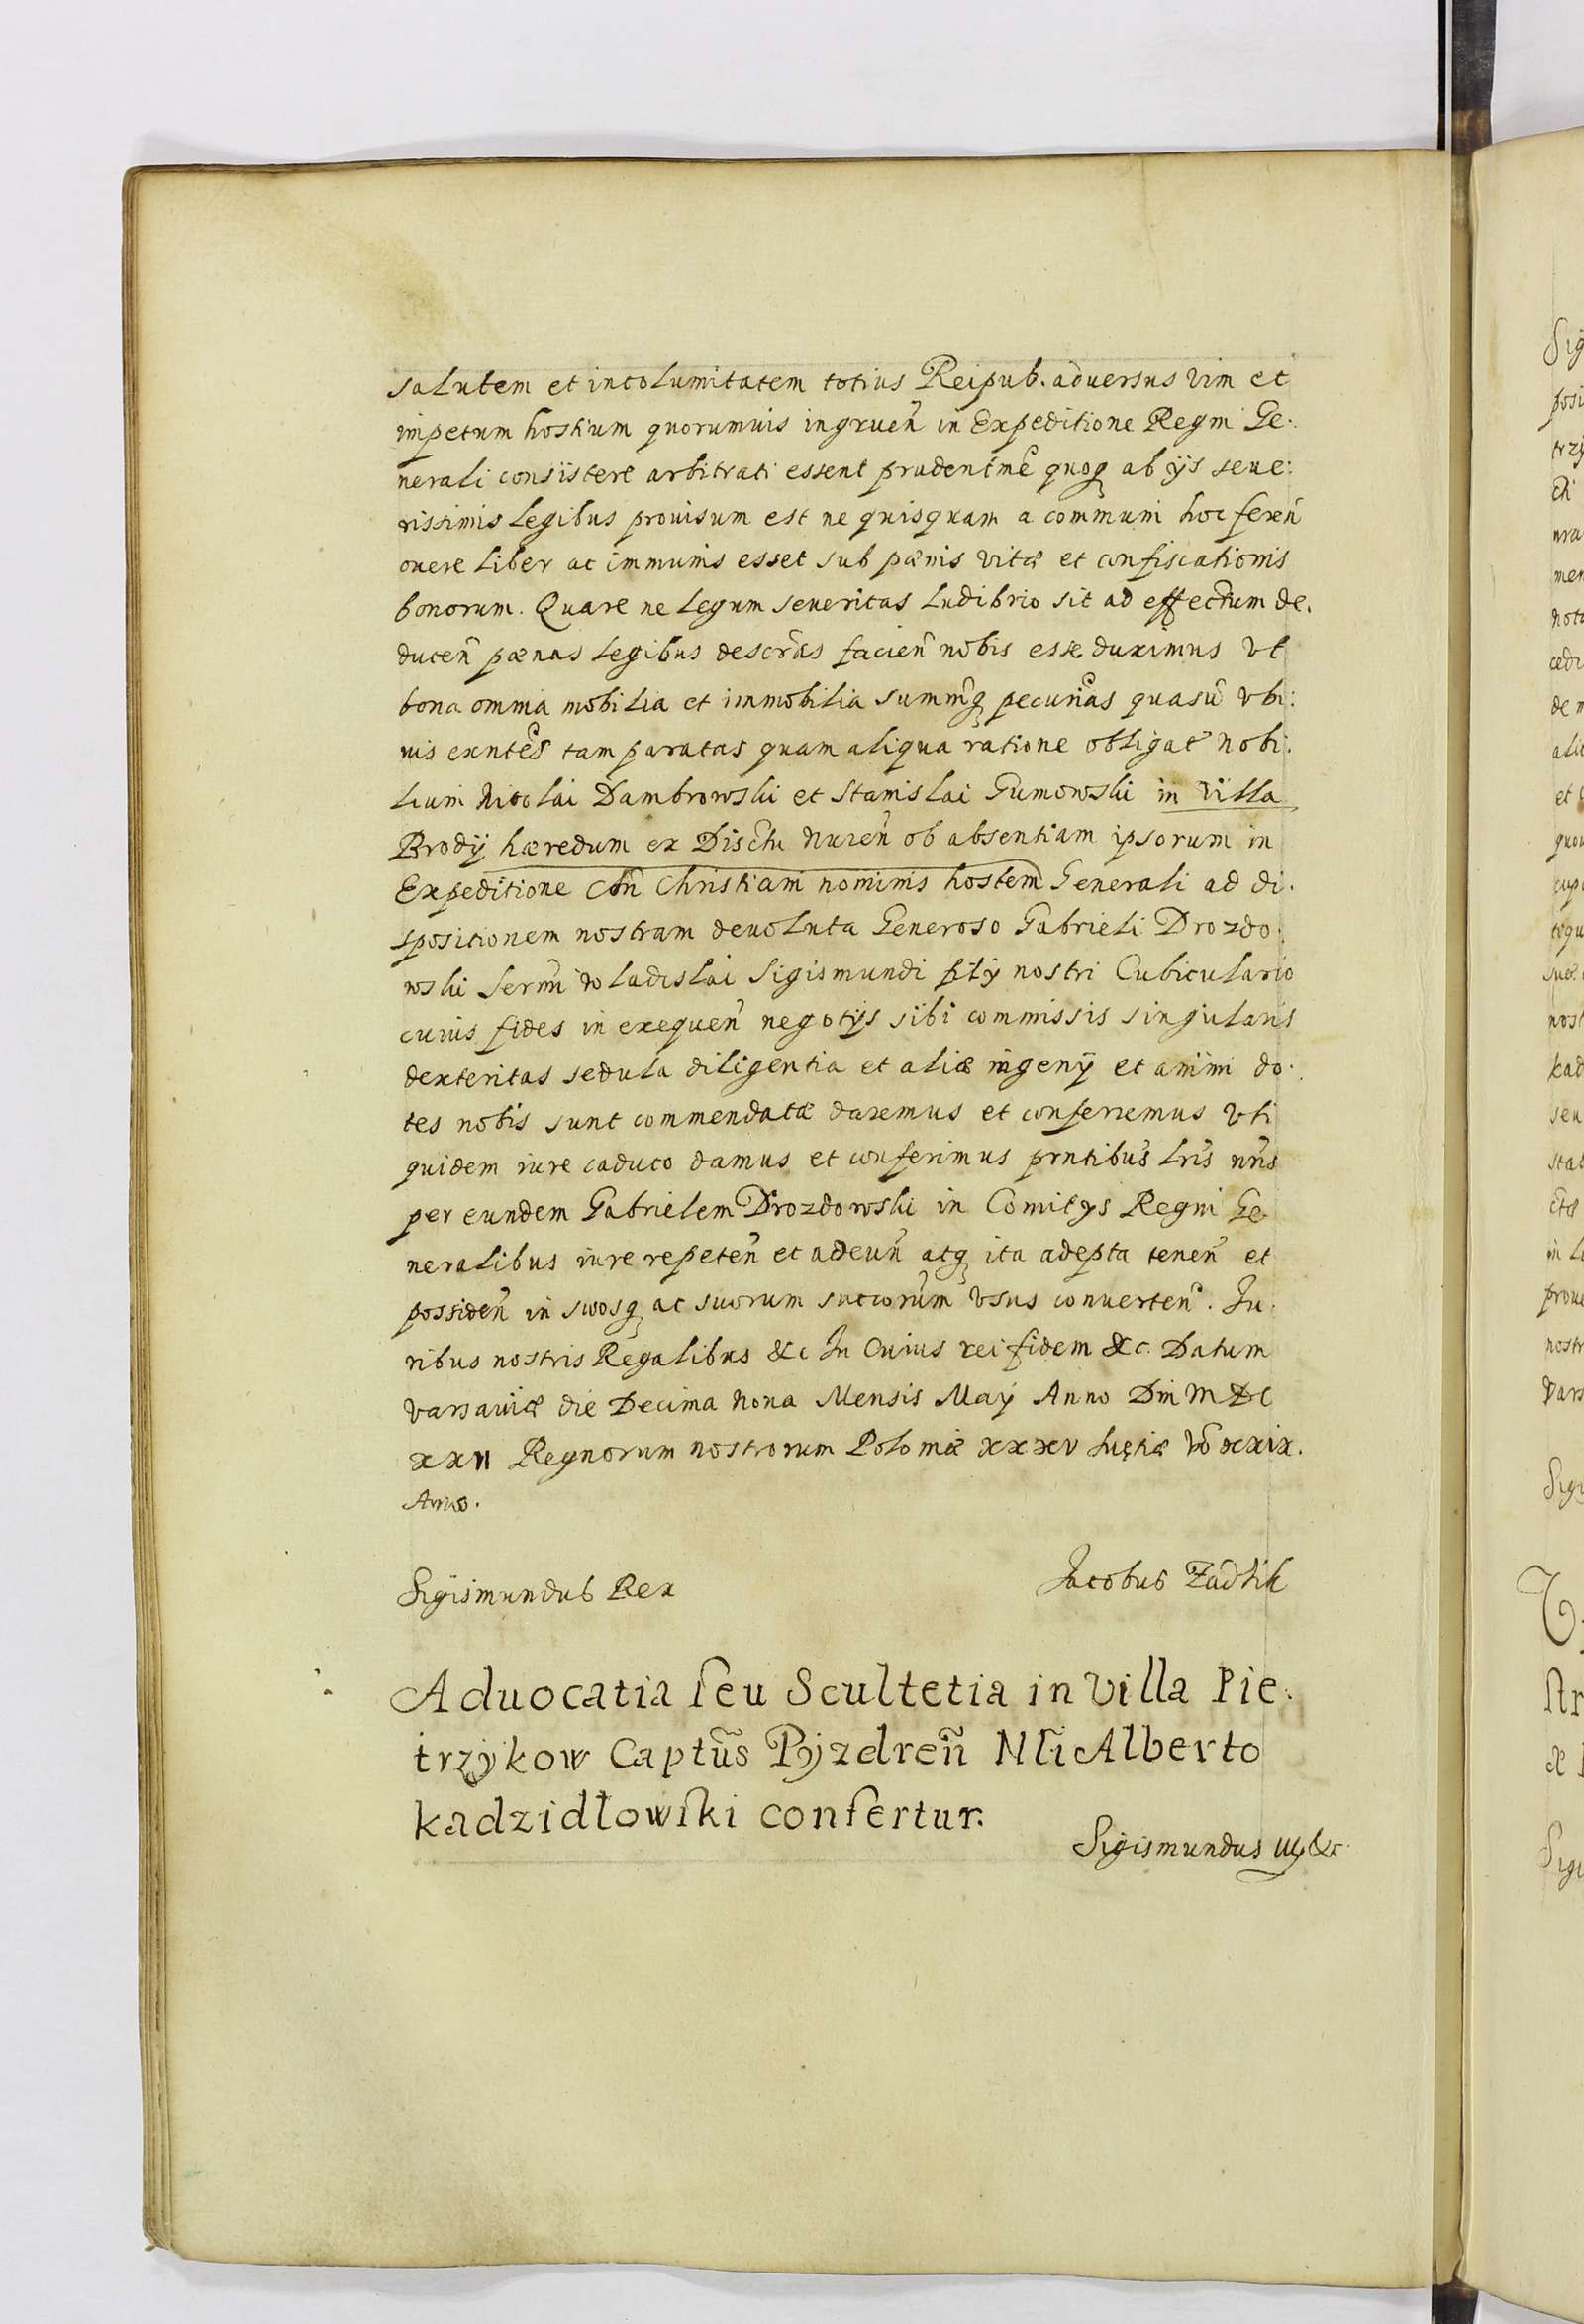 salutem et incolumitatem totius Reipub. aduersus vim et
impetum hostium quorumuis ingruen̄ in Expeditione Regni Ge:
nerali consistere arbitrati essent prudentme quoq ab ijs seue:
rissimis legibus prouisum est ne quisquam a communi hoc feren̄
onere liber ac immunis esset sub pœnis vitæ et confiscationis
bonorum. Quare ne legum seueritas ludibrio sit ad effectum de.
ducen̄ pœnas legibus descrãs facien̄ nobis esse duximus vt
bona omnia mobilia et immobilia summãq pecuniãs quasũ vbi:
uis exntẽs tam paratas quam aliqua ratione obligat̄ nobi:
lium Nicolai Dambrowski et Stanislai Gumowski in villa
Brodij hæredum ex Disctu Nuren̄ ob absentiam ipsorum in
Expeditione cōn Christiani nominis hostem Generali ad di.
spositionem nostram deuoluta Generoso Gabrieli Drozdo:
wski Sermi Wladislai Sigismundi filij nostri Cubiculario
cuius fides in exequen̄ negotijs sibi commissis singularis
dexteritas sedula diligentia et aliæ ingenij et animi do.
tes nobis sunt commendatæ daremus et conferremus vti
quidem iure caduco damus et conferimus prntibus lris nris
per eundem Gabrielem Drozdowski in Comitijs Regni Ge
neralibus iure repeten̄ et adeun̄ atq ita adepta tenen̄ et
possiden̄ in suosq ac suorum succorum vsus conuerten̄. Ju.
ribus nostris Regalibus &c In Cuius rei fidem &c. Datum
varsauiæ die Decima nona Mensis Maij Anno Dni MDC
xxii Regnorum nostrorum Poloniæ xxxv Suetiæ vō xxix.
Anno.
Sigismundus Rex
Jacobus Zadzik
Aduocatia seu Scultetia in villa Pie:
trzykow Captũs Pyzdreñ Nli Alberto
kadzidłowski confertur.
Sigismundus iij &c.